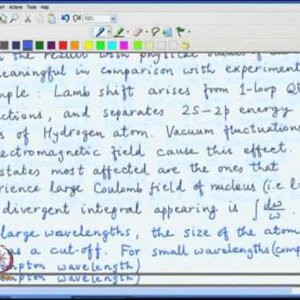 the result with physical values of
meaningful in comparison with experiment
ple : Lamb shift arises from 1-loop Q
ctions, and separates 2S-2p energy
s of Hydrogen atom. Vacuum fluctuations
lectromagnetic field cause this effect.
states most affected are the ones that
rience large Coulomb field of nucleus (i.e.
divergent integral appearing is ∫dω/ω.
large wavelengths, the size of the atom
s a cut-off. For small wavelengths (comp
mpton wavelength)
mpton wavelength)